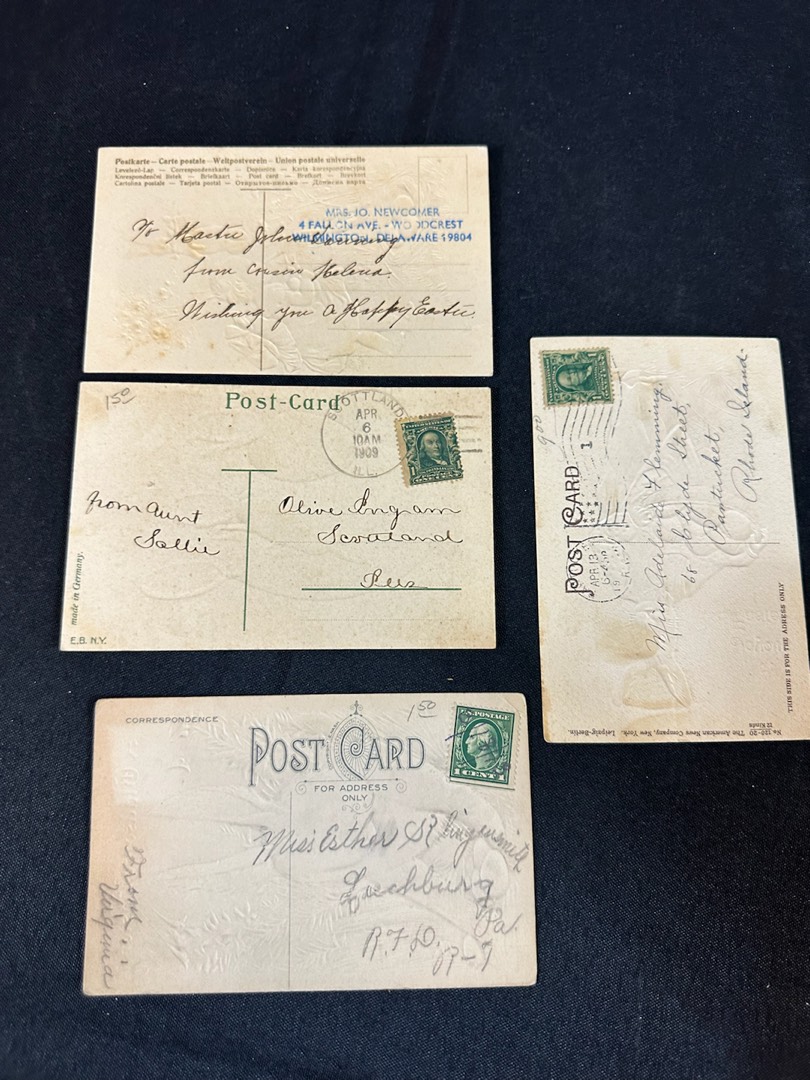 Postkarte – Carte postale – Weltpostverein – Union postale universelle
Levelező-Lap — Correspondenzkarte — Dopisnica — Karta korespondencyjna
Korespondenční lístek — Briefkaart — Post card — Brefkort — Brevkort
Cartolina postale — Tarjeta postal — Открытое письмо —
MRS. JO. NEWCOMER
4 FALLON AVE. - WOODCREST
WILMINGTON, DELAWARE 19804
To Master John
from Cousin Helena.
Wishing you a Happy Easter.
1 50
Post-Card
SCOTTLAND
APR
6
10AM
1909
ILL.
1
from Aunt
Sallie
Olive Ingram
Scottland
Ills
made in Germany.
E.B. N.Y.
CORRESPONDENCE
1 50
POST CARD
FOR ADDRESS
ONLY
U.S. POSTAGE
1 CENT 1
Miss Esther
Leechburg
Pa.
R.F.D.
R-1
From
Virginia
900
POST CARD
1
APR 13
Miss Adelaide Flemming,
68 Clyde Street,
Pawtucket,
Rhode Island.
THIS SIDE IS FOR THE ADRESS ONLY
No. 120-20 The American News Company, New York. Leipzig-Berlin.
12 Kinds